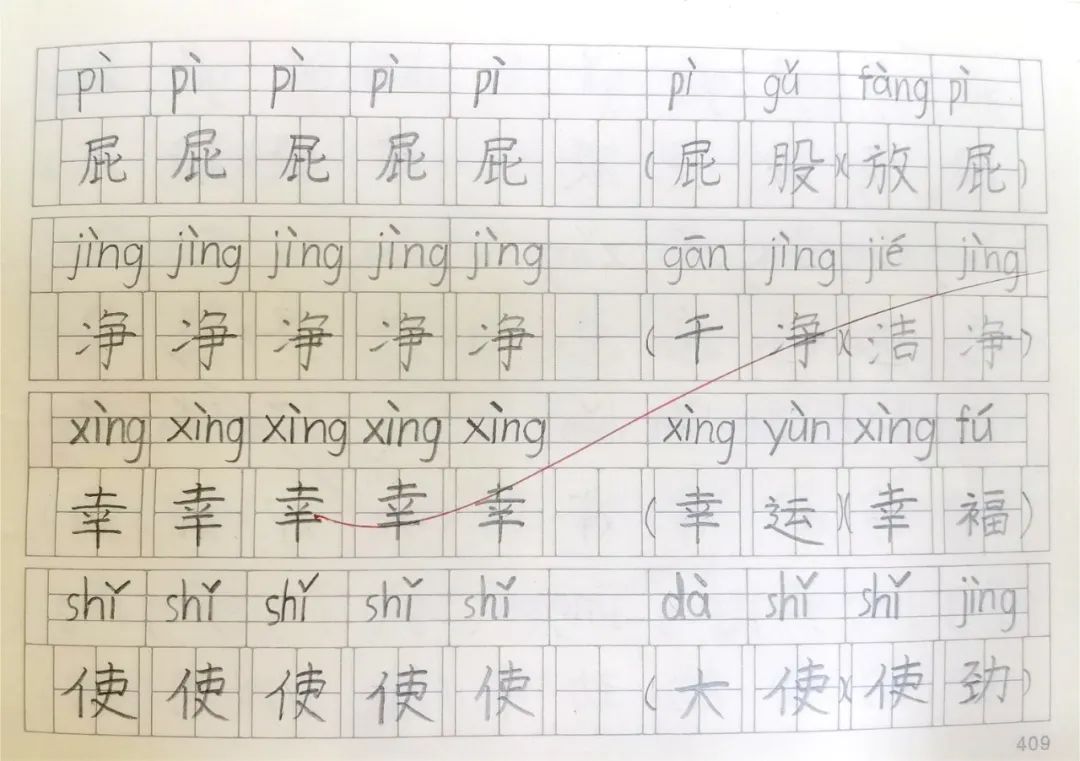 pì pì pì pì pì pì gǔ fàng pì
屁 屁 屁 屁 屁 (屁 股)(放 屁)
jìng jìng jìng jìng jìng gān jìng jié jìng
净 净 净 净 净 (干 净)(洁 净)
xìng xìng xìng xìng xìng xìng yùn xìng fú
幸 幸 幸 幸 幸 (幸 运)(幸 福)
shǐ shǐ shǐ shǐ shǐ dà shǐ shǐ jìng
使 使 使 使 使 (大 使)(使 劲)
409